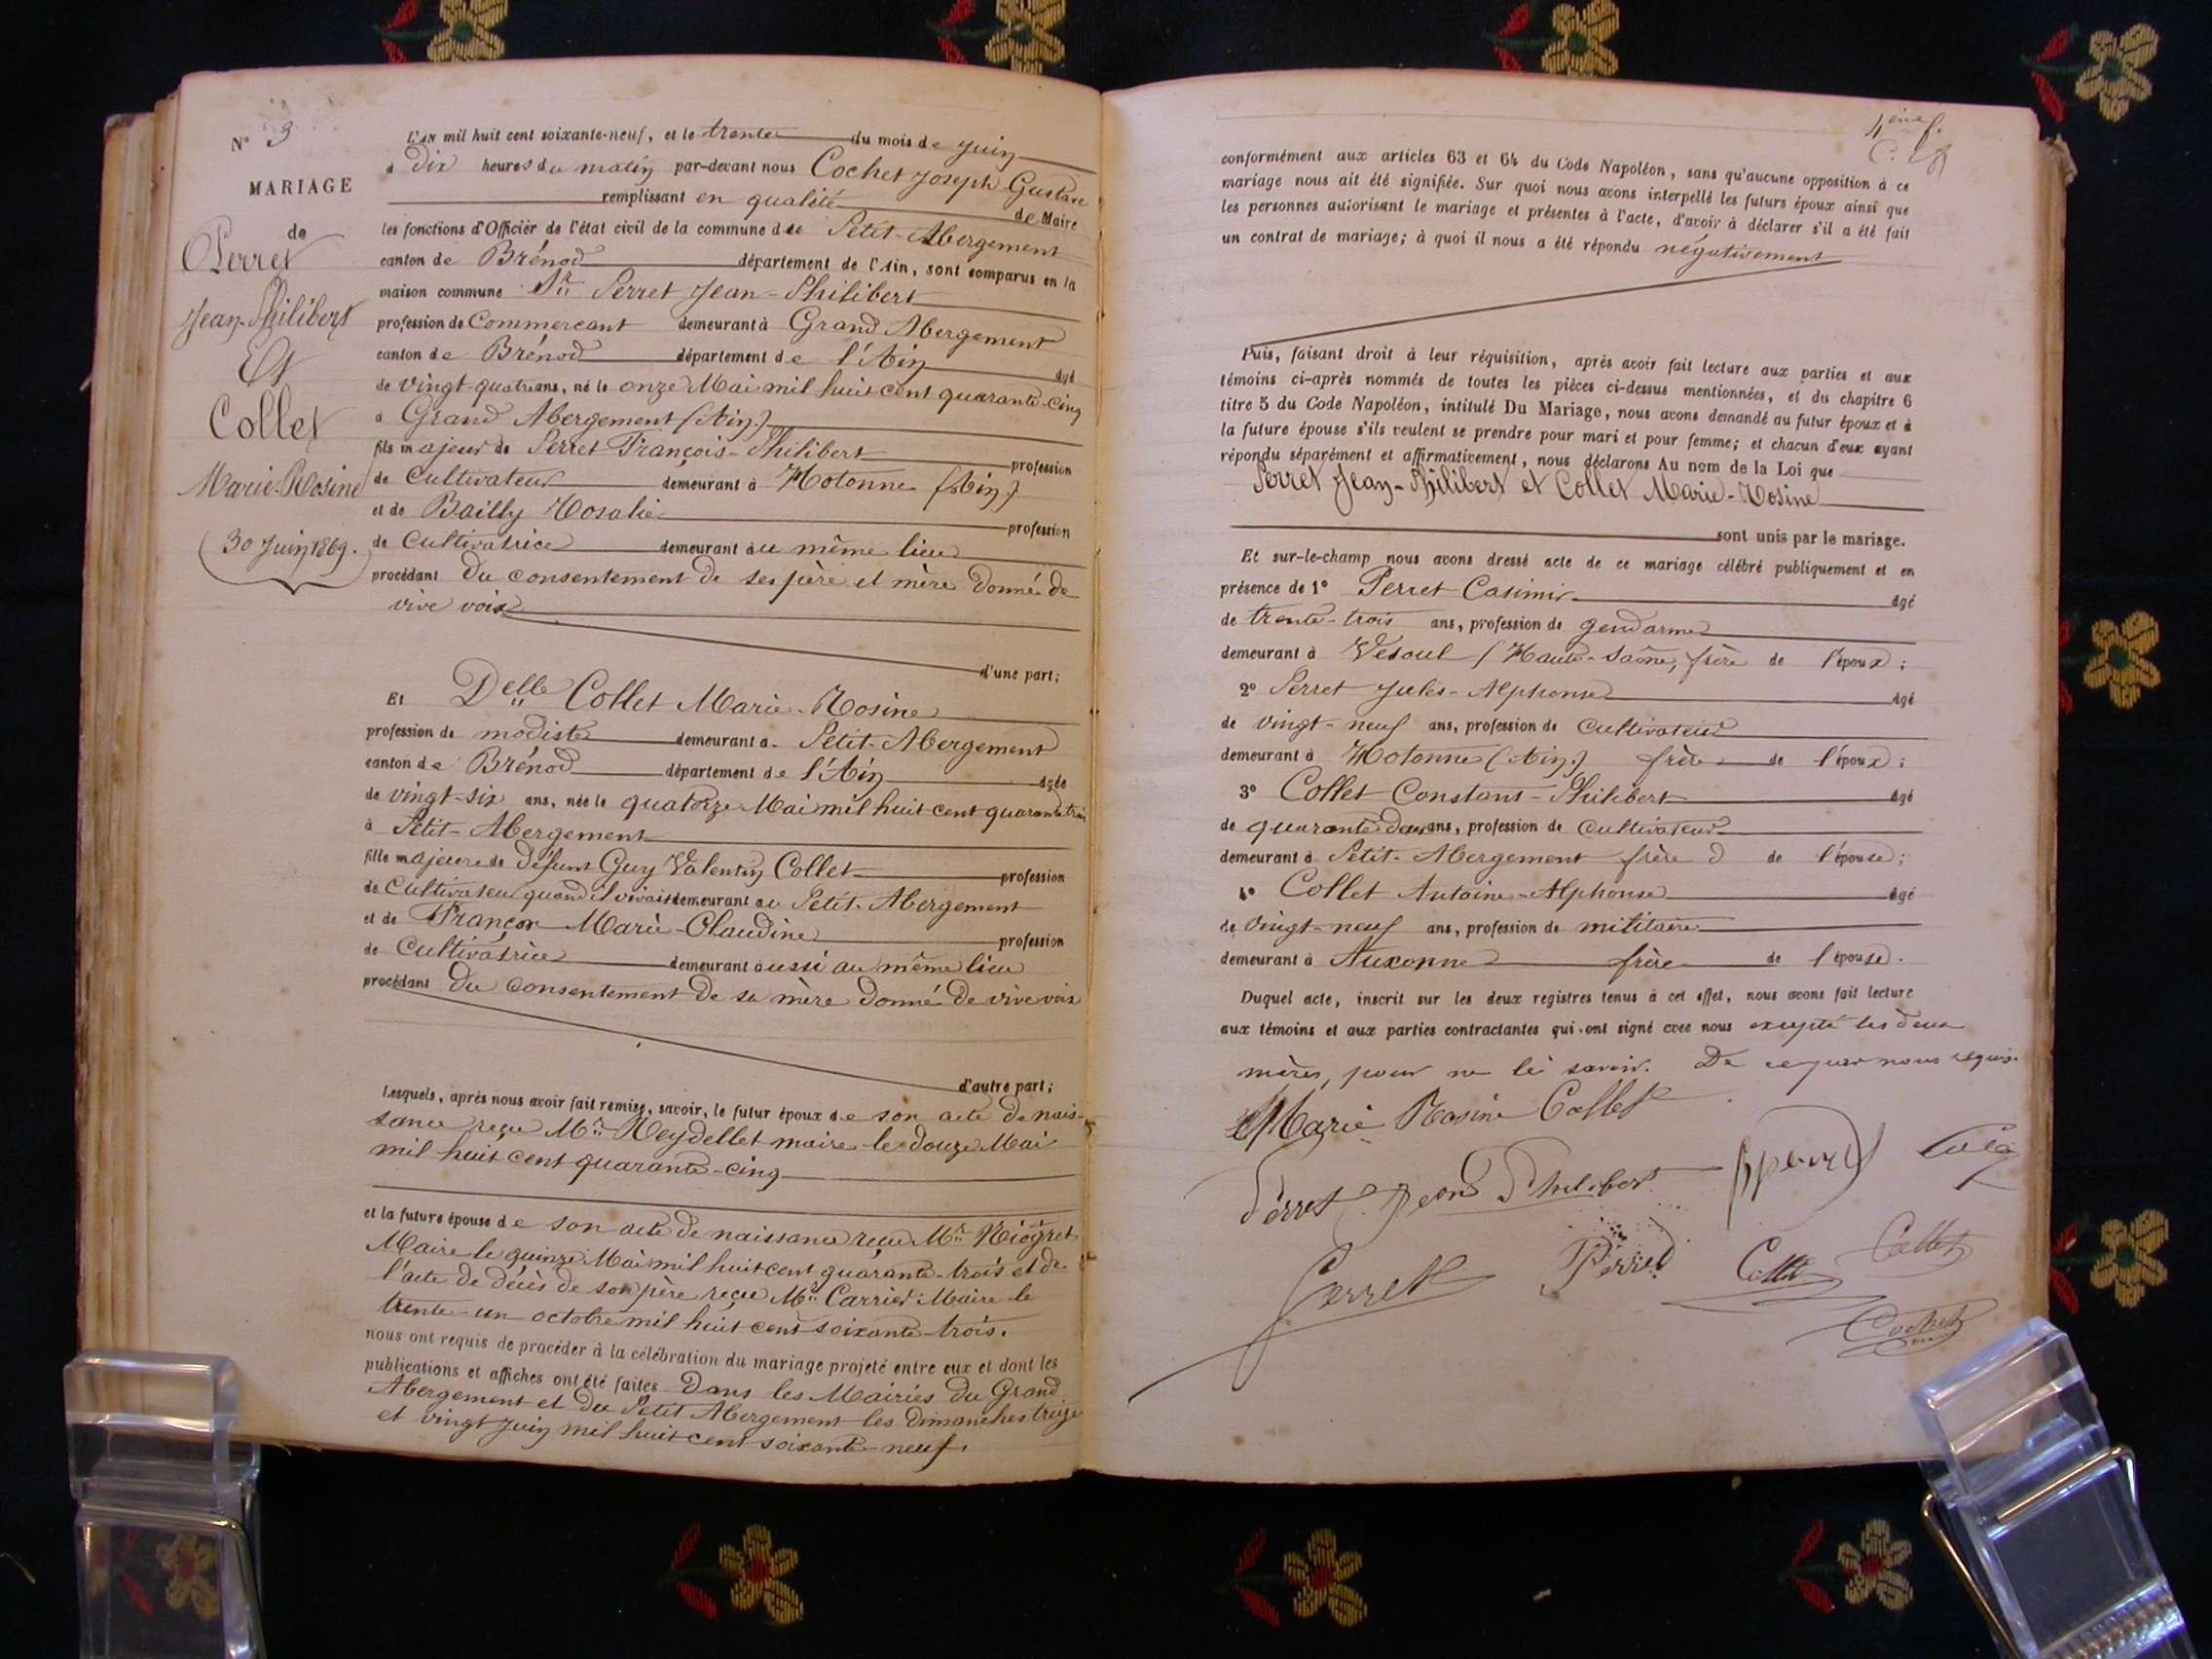 N° 3
MARIAGE
de
Perret
Jean-Philibert
Et
Collet
Marie-Rosine
30 Juin 1869.
L'AN mil huit cent soixante-neuf, et le trente du mois de Juin
à dix heures du matin par-devant nous Cochet Joseph Gustave
remplissant en qualité de Maire
les fonctions d'Officier de l'état civil de la commune de Petit-Abergement
canton de Brénod département de l'Ain, sont comparus en la
maison commune Sr Perret Jean-Philibert
profession de Commercant demeurant à Grand Abergement
canton de Brénod département de l'Ain âgé
de vingt-quatre ans, né le onze Mai mil huit cent quarante-cinq
à Grand Abergement (Ain)
fils majeur de Perret François-Philibert profession
de Cultivateur demeurant à Hotonne (Ain)
et de Bailly Rosalie profession
de Cultivatrice demeurant au même lieu
procédant du consentement de ses père et mère donné de
vive voix
d'une part;
Et Delle Collet Marie-Rosine
profession de modiste demeurant à Petit-Abergement
canton de Brénod département de l'Ain âgée
de vingt-six ans, née le quatorze Mai mil huit cent quarante trois
à Petit-Abergement
fille majeure de défunt Guy Valentin Collet profession
de Cultivateur quand il vivait demeurant au Petit-Abergement
et de Françon Marie-Claudine profession
de Cultivatrice demeurant aussi au même lieu
procédant du consentement de sa mère donné de vive voix
d'autre part;
Lesquels, après nous avoir fait remise, savoir, le futur époux de son acte de nais-
sance reçu Mr Neydellet maire le douze Mai
mil huit cent quarante-cinq
et la future épouse de son acte de naissance reçu Mr Niogret
Maire le quinze Mai mil huit cent quarante-trois et de
l'acte de décès de son père reçu Mr Carrier Maire le
trente-un octobre mil huit cent soixante-trois.
nous ont requis de procéder à la célébration du mariage projeté entre eux et dont les
publications et affiches ont été faites Dans les Mairies du Grand
Abergement et du Petit Abergement les dimanches treize
et vingt Juin mil huit cent soixante-neuf.
4eme f.
conformément aux articles 63 et 64 du Code Napoléon, sans qu'aucune opposition à ce
mariage nous ait été signifiée. Sur quoi nous avons interpellé les futurs époux ainsi que
les personnes autorisant le mariage et présentes à l'acte, d'avoir à déclarer s'il a été fait
un contrat de mariage; à quoi il nous a été répondu négativement
Puis, faisant droit à leur réquisition, après avoir fait lecture aux parties et aux
témoins ci-après nommés de toutes les pièces ci-dessus mentionnées, et du chapitre 6
titre 5 du Code Napoléon, intitulé Du Mariage, nous avons demandé au futur époux et à
la future épouse s'ils veulent se prendre pour mari et pour femme; et chacun d'eux ayant
répondu séparément et affirmativement, nous déclarons Au nom de la Loi que
Perret Jean-Philibert et Collet Marie-Rosine
sont unis par le mariage.
Et sur-le-champ nous avons dressé acte de ce mariage célébré publiquement et en
présence de 1° Perret Casimir âgé
de trente-trois ans, profession de gendarme
demeurant à Vesoul (Haute-Saône, frère de l'époux;
2° Perret Jules-Alphonse âgé
de vingt-neuf ans, profession de cultivateur
demeurant à Hotonne (Ain) frère de l'époux;
3° Collet Constant-Philibert âgé
de quarante-deux ans, profession de cultivateur
demeurant à Petit-Abergement frère de l'épouse;
4° Collet Antoine-Alphonse âgé
de vingt-neuf ans, profession de militaire
demeurant à Auxonne frère de l'épouse.
Duquel acte, inscrit sur les deux registres tenus à cet effet, nous avons fait lecture
aux témoins et aux parties contractantes qui ont signé avec nous excepté les deux
mères, pour ne le savoir. De ce par nous requis.
Marie Rosine Collet
Perret Jean Philibert
Perret Perret Collet Collet
Cochet